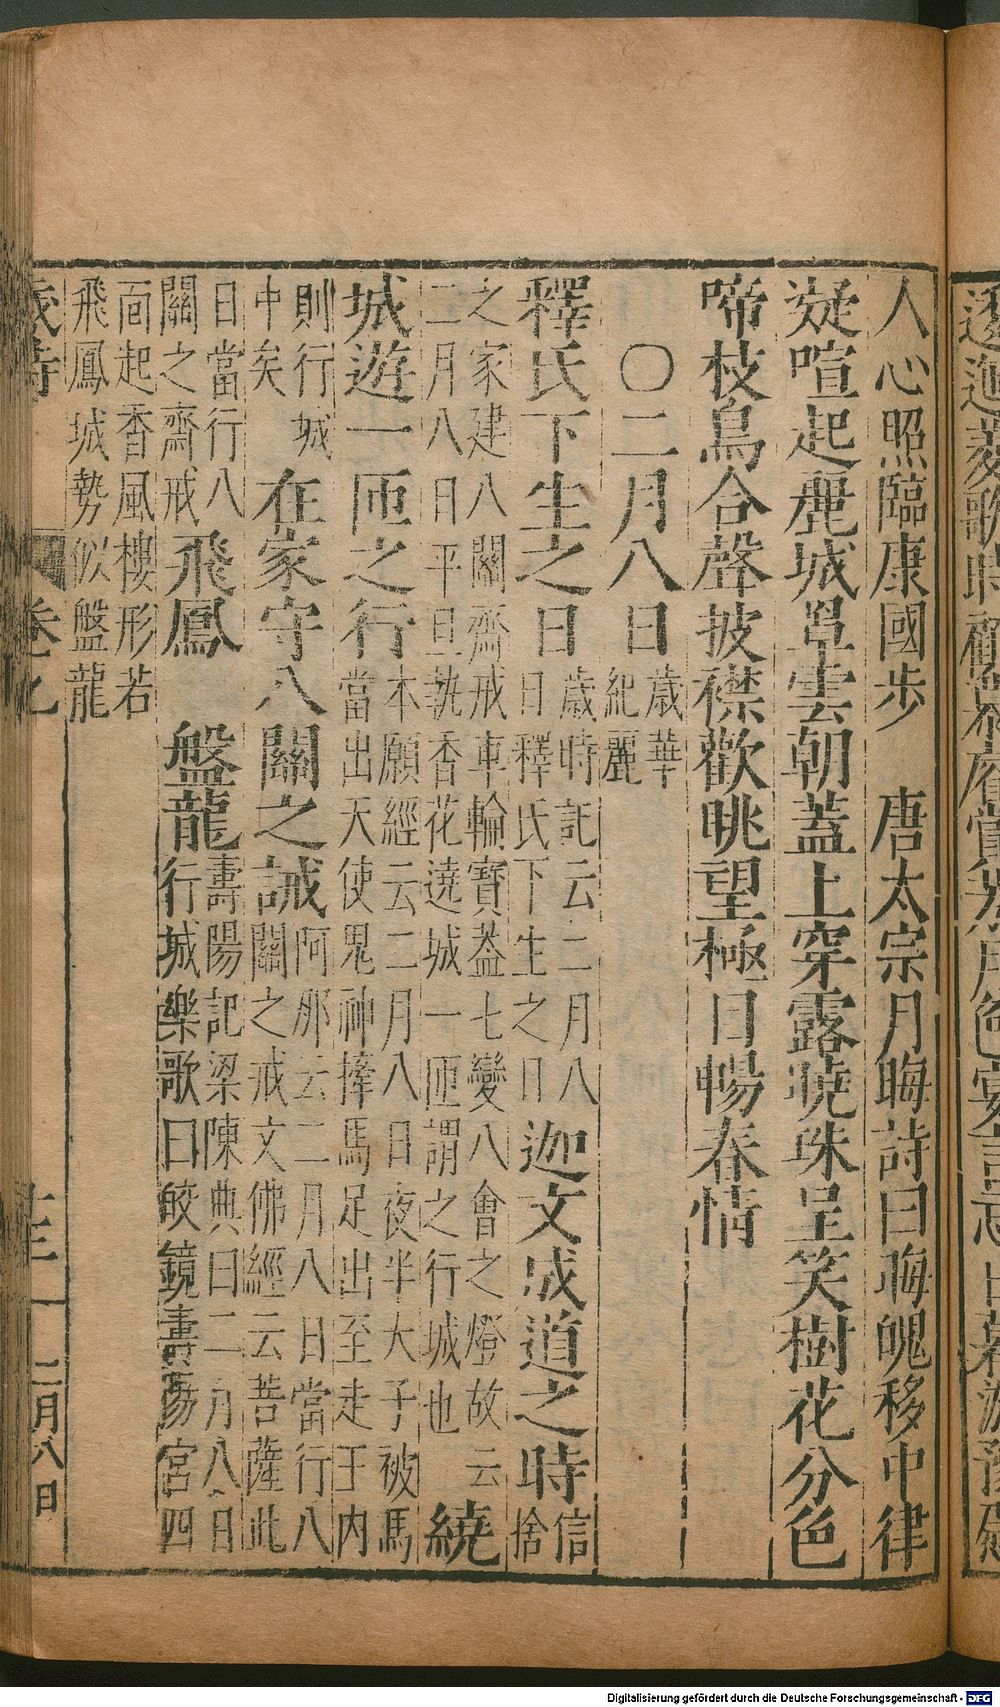 人心照臨康國歩　唐太宗月晦詩曰晦魄移中律
凝喧起麗城罩雲朝蓋上穿露曉珠呈笑樹花分色
啼枝鳥合聲披襟歡眺望極目暢春情
〇二月八日
歲華
紀麗
釋氏下生之日
歲時記云二月八
日釋氏下生之日
迦文成道之時
信
捨
之家建八關齋戒車輪寳葢七變八會之燈故云
二月八日平旦執香花遶城一匝謂之行城也
繞
城遊一匝之行
本願經云二月八日夜半太子被馬
當出天使鬼神捧馬足出至走于内
則行城
中矣
在家守八關之誡
阿那云二月八日當行八
關之戒文佛經云菩薩此
日當行八
關之齋戒
飛鳳　盤龍
壽陽記梁陳典曰二月八日
行城樂歌曰皎鏡壽陽宮四
面起香風樓形若
飛鳳城勢似盤龍
歲時
卷之
二月八日
Digitalisierung gefördert durch die Deutsche Forschungsgemeinschaft - DFG